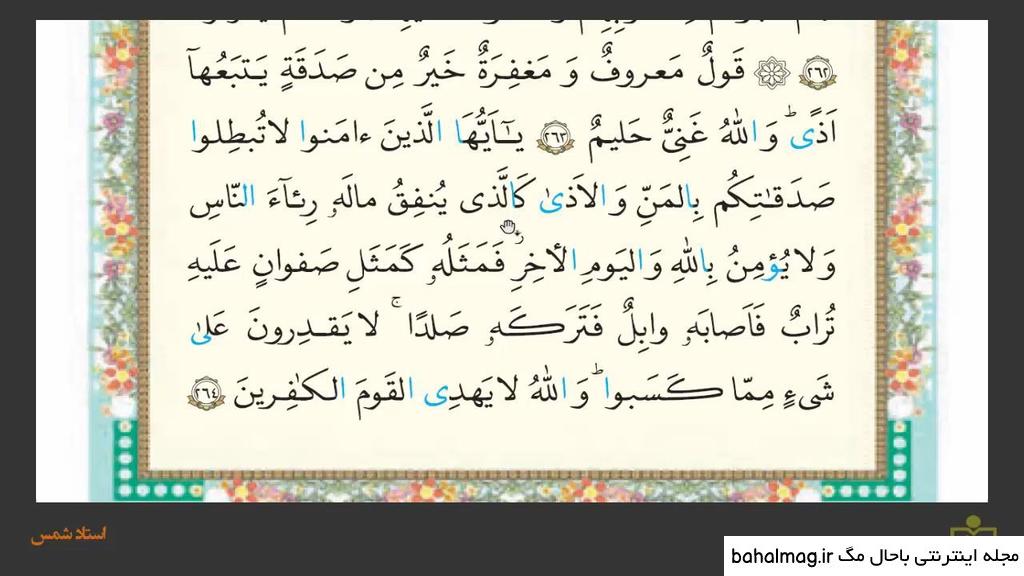 ﴿٢٦٢﴾ قَولٌ مَعروفٌ وَ مَغفِرَةٌ خَيرٌ مِن صَدَقَةٍ يَتبَعُهآ
اَذًى ۗ وَ اللهُ غَنِىٌّ حَليمٌ ﴿٢٦٣﴾ يٰٓـاَيُّهَا الَّذينَ ءامَنوا لاتُبطِلوا
صَدَقٰتِكُم بِالمَنِّ وَ الاَذىٰ كَالَّذى يُنفِقُ مالَهۥ رِئآءَ النّاسِ
وَ لايُؤمِنُ بِاللهِ وَ اليَومِ الأخِرِ ۖ فَمَثَلُهۥ كَمَثَلِ صَفوانٍ عَلَيهِ
تُرابٌ فَاَصابَهۥ وابِلٌ فَتَرَكَهۥ صَلدًا ۚ لا يَقدِرونَ عَلىٰ
شَىءٍ مِمّا كَسَبوا ۗ وَ اللهُ لا يَهدِى القَومَ الكٰفِرينَ ﴿٢٦٤﴾
استاد شمس
مجله اینترنتی باحال مگ bahalmag.ir